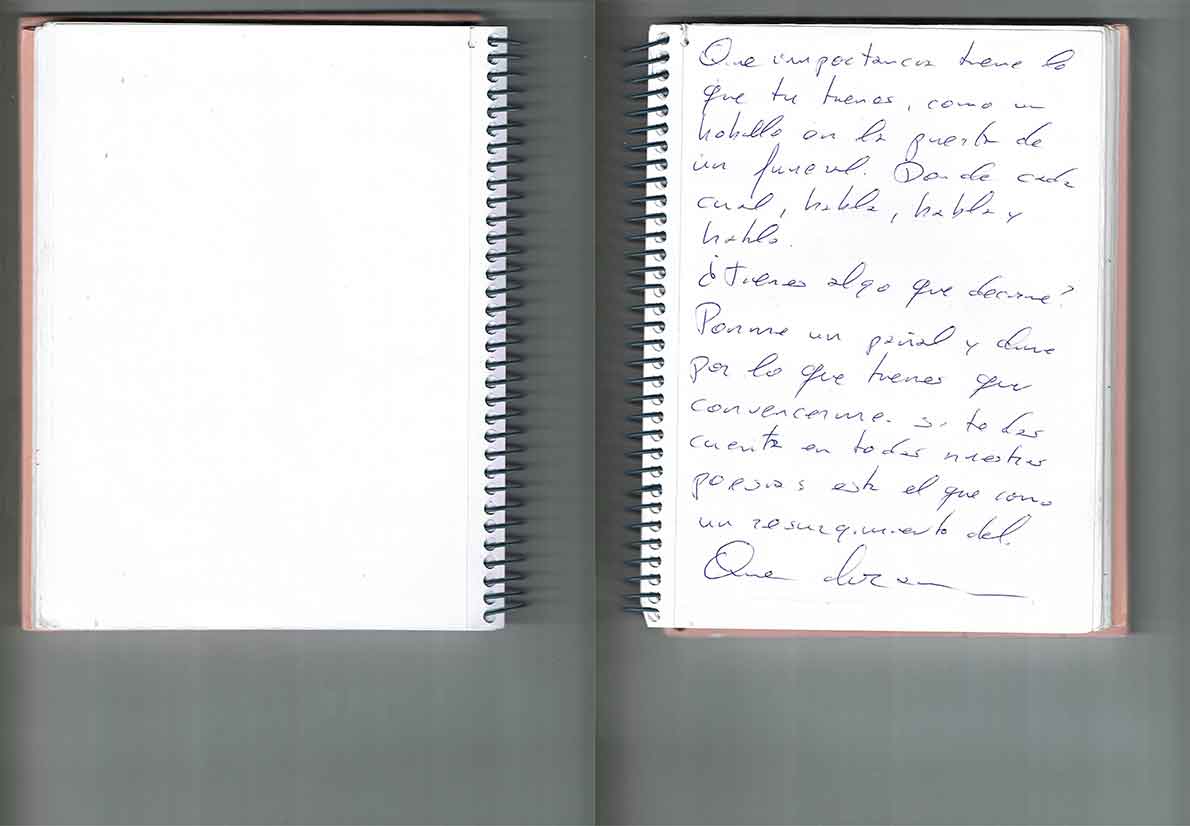 Que importancia tiene lo
que tu tienes, como un
en la puerta de
un funeral. Donde cada
cual, habla, habla y
habla.
¿Tienes algo que decirme?
Ponme un pañal y dime
por lo que tienes que
convencerme. Si te das
cuenta en todas nuestras
poesias esta el que como
un resurgimiento del.
Que diran